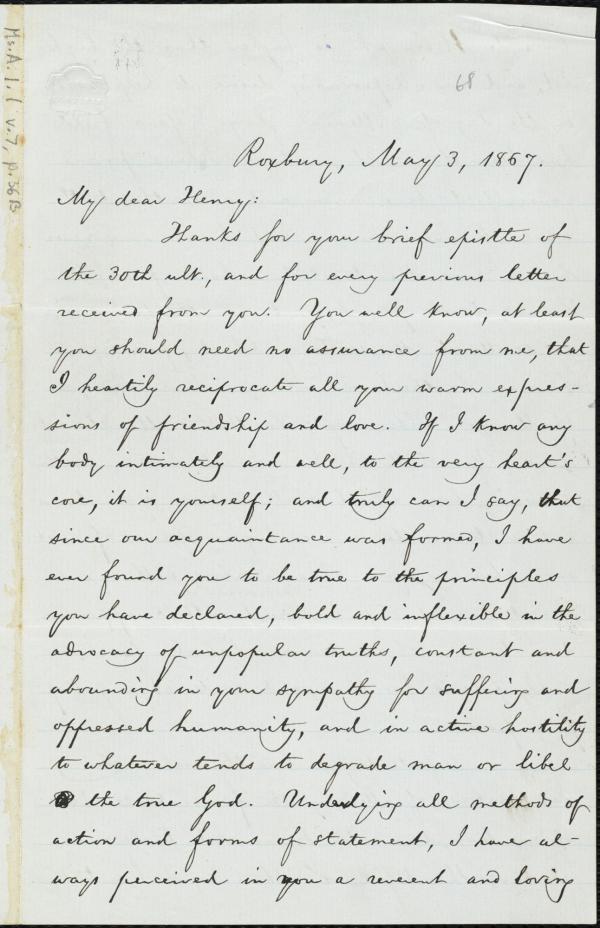 Ms.A.1.1 v.7, p.36B
68
Roxbury, May 3, 1867.
My dear Henry:
Thanks for your brief epistle of
the 30th ult., and for every previous letter
received from you. You well know, at least
you should need no assurance from me, that
I heartily reciprocate all your warm expres-
sions of friendship and love. If I know any
body intimately and well, to the very heart's
core, it is yourself; and truly can I say, that
since our acquaintance was formed, I have
ever found you to be true to the principles
you have declared, bold and inflexible in the
advocacy of unpopular truths, constant and
abounding in your sympathy for suffering and
oppressed humanity, and in active hostility
to whatever tends to degrade man or libel
the true God. Underlying all methods of
action and forms of statement, I have al-
ways perceived in you a reverent and loving